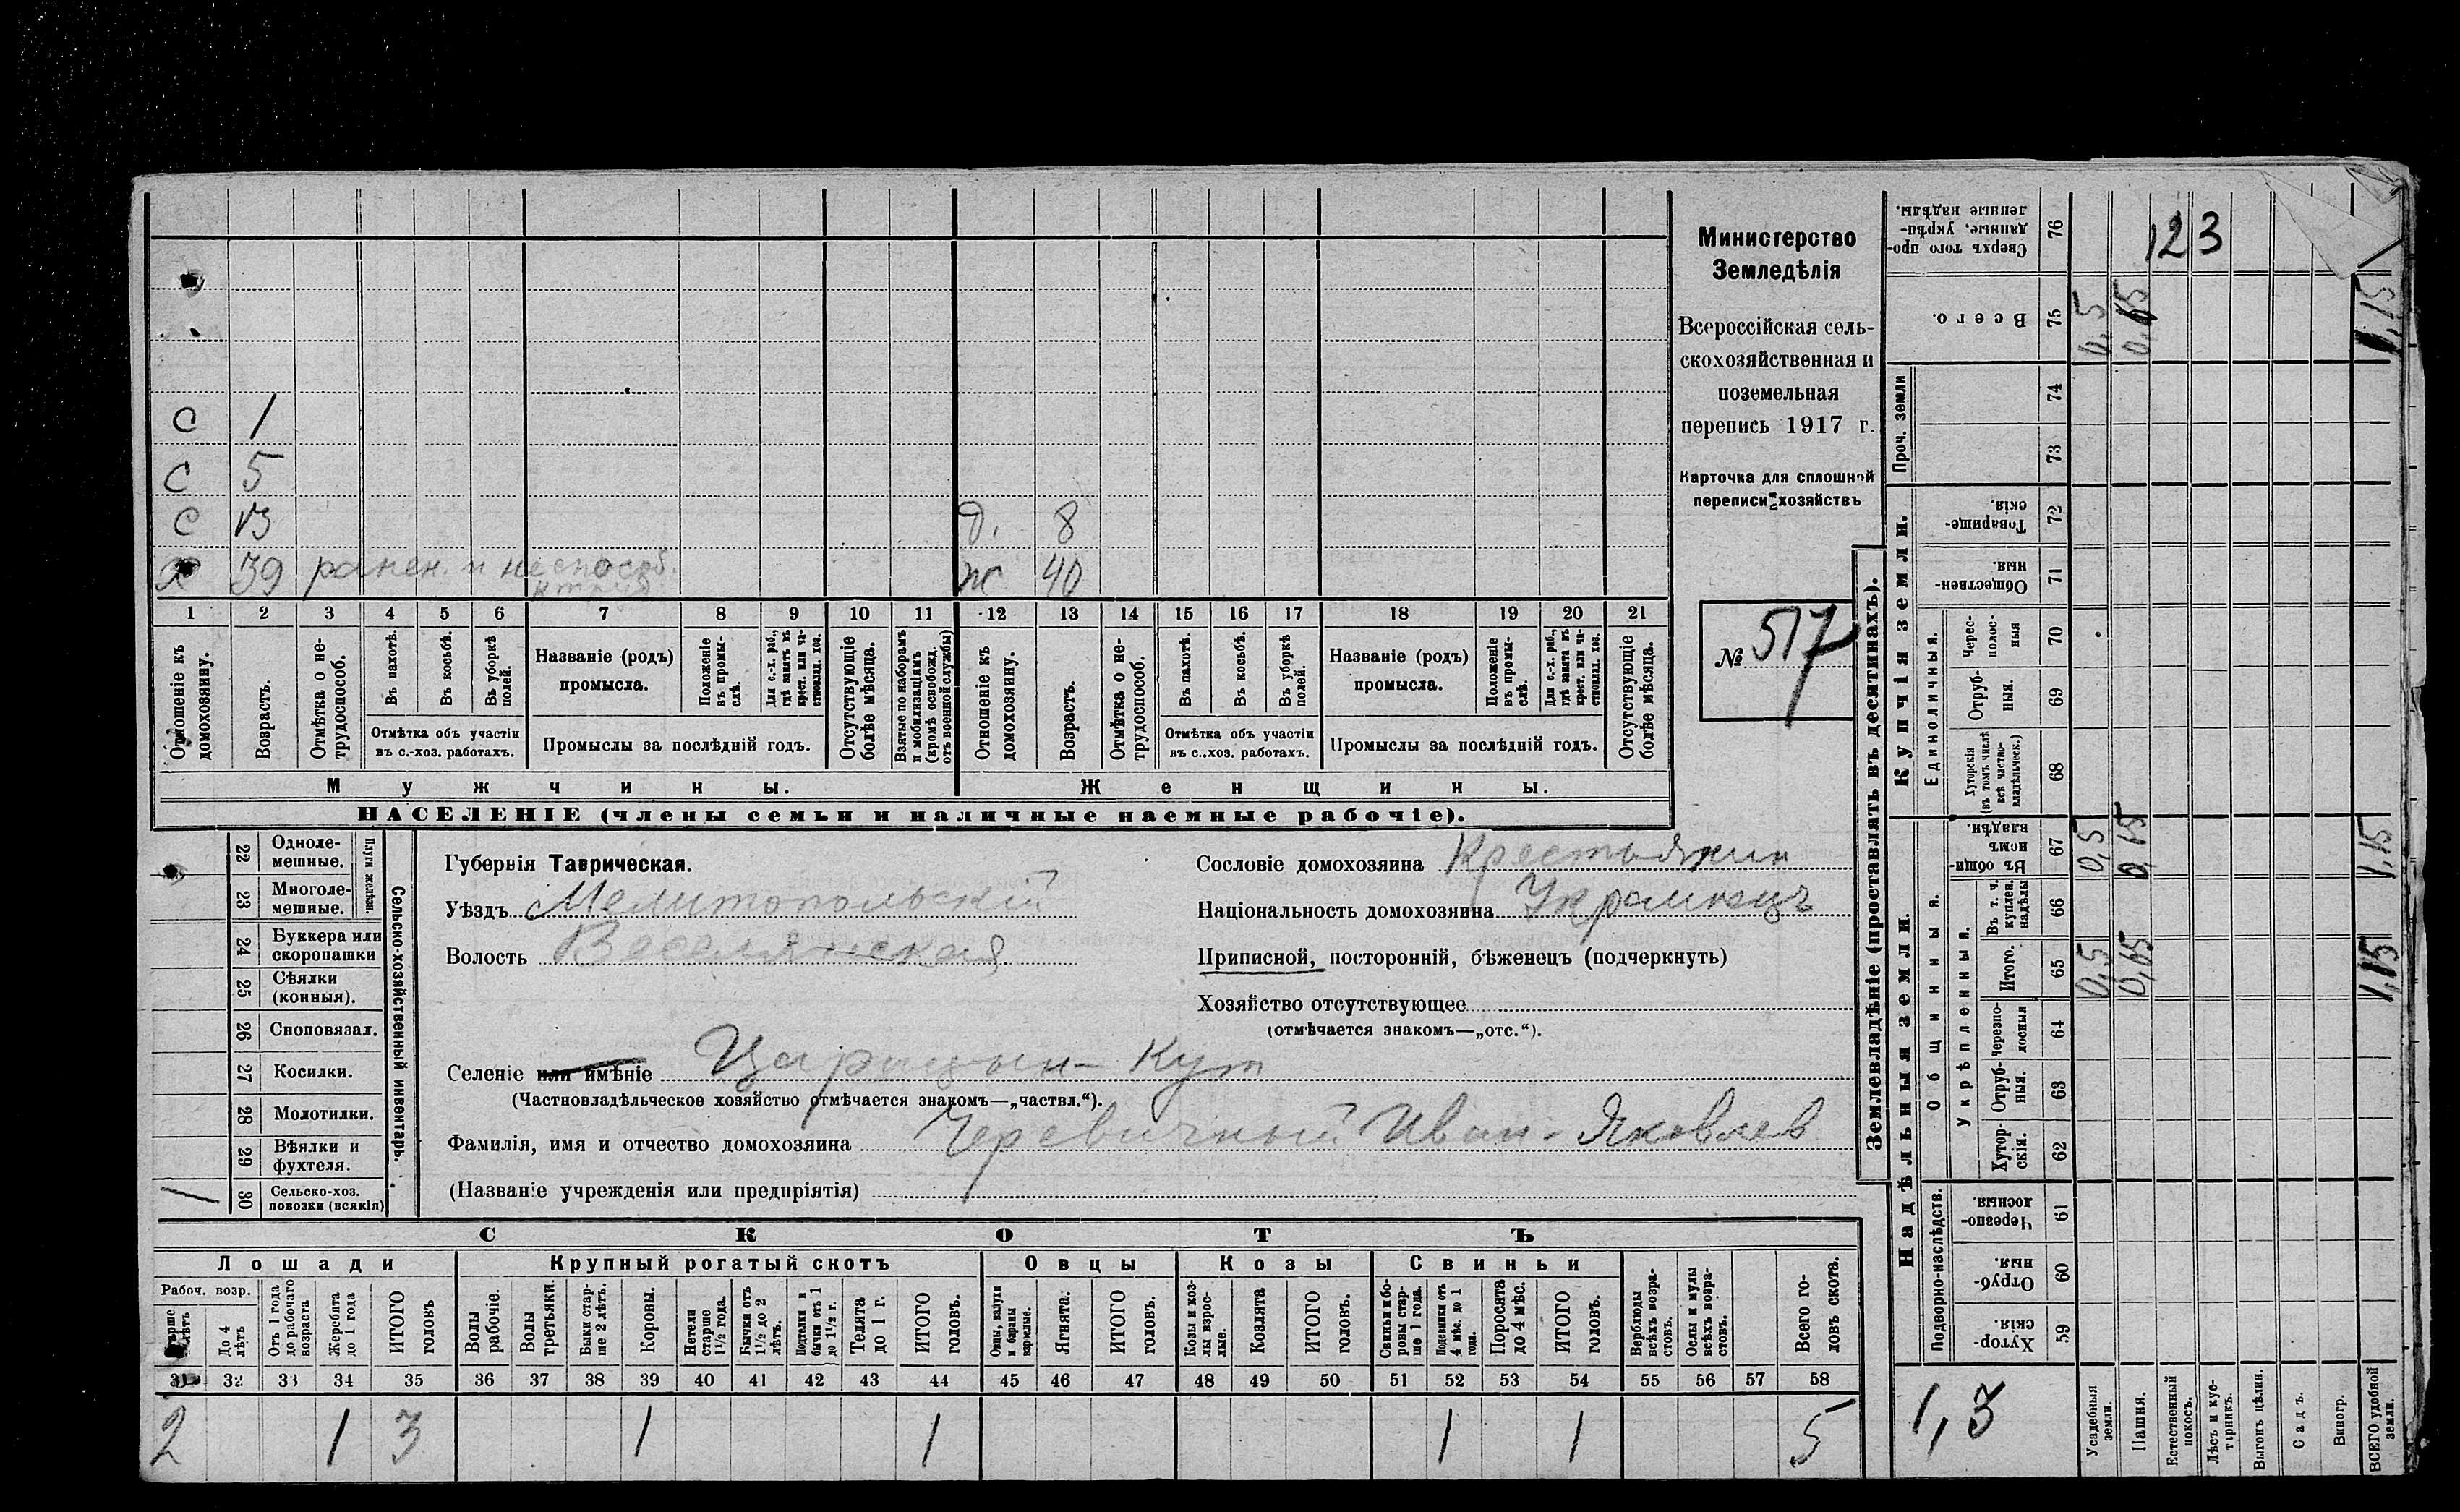 Министерство
Земледѣлія
Всероссійская сель-
скохозяйственная и
поземельная
перепись 1917 г.
Карточка для сплошной
переписи хозяйствъ
№ 517
С 1
С 5
С 13
Х 39 ранен. и неспособ.
д. 8
ж 40
1 2 3 4 5 6 7 8 9 10 11 12 13 14 15 16 17 18 19 20 21
Отношеніе къ домохозяину.
Возрастъ.
Отмѣтка о не-трудоспособ.
Въ пахотѣ.
Въ косьбѣ.
Въ уборкѣ полей.
Отмѣтка объ участіи въ с.-хоз. работахъ.
Названіе (родъ) промысла.
Положеніе въ промы-слѣ.
Для с.-х. раб., гдѣ занятъ въ крест. или ча-стновлад. хоз.
Промыслы за послѣдній годъ.
Отсутствующіе болѣе мѣсяца.
Взятые по наборамъ и мобилизаціямъ (кромѣ освобожд. отъ военной службы)
Отношеніе къ домохозяину.
Возрастъ.
Отмѣтка о не-трудоспособ.
Въ пахотѣ.
Въ косьбѣ.
Въ уборкѣ полей.
Отмѣтка объ участіи въ с.-хоз. работахъ.
Названіе (родъ) промысла.
Положеніе въ промы-слѣ.
Для с.-х. раб., гдѣ занята въ крест. или ча-стновлад. хоз.
Промыслы за послѣдній годъ.
Отсутствующіе болѣе мѣсяца.
Мужчины.
Женщины.
НАСЕЛЕНІЕ (члены семьи и наличные наемные рабочіе).
22 Одноле-мешные.
23 Многоле-мешные.
Плуги желѣзн.
24 Буккера или скоропашки
25 Сѣялки (конныя).
26 Сноповязал.
27 Косилки.
28 Молотилки.
29 Вѣялки и фухтеля.
1 30 Сельско-хоз. повозки (всякія)
Сельско-хозяйственный инвентарь.
Губернія Таврическая.
Уѣздъ Мелитопольскій
Волость Веселянская
Сословіе домохозяина Крестьянин
Національность домохозяина Украинецъ
Приписной, посторонній, бѣженецъ (подчеркнуть)
Хозяйство отсутствующее
(отмѣчается знакомъ—„отс.“).
Селеніе или имѣніе Царицын-Кут
(Частновладѣльческое хозяйство отмѣчается знакомъ—„частвл.“).
Фамилія, имя и отчество домохозяина Черевичный Иван Яковлев
(Названіе учрежденія или предпріятія)
СКОТЪ
Лошади
Крупный рогатый скотъ
Овцы
Козы
Свиньи
Рабоч. возр.
Старше 4 лѣтъ
До 4 лѣтъ
Отъ 1 года до рабочаго возраста
Жеребята до 1 года
ИТОГО головъ
Волы рабочіе.
Волы третьяки.
Быки стар-ше 2 лѣтъ.
Коровы.
Нетели старше 1½ года.
Бычки отъ 1½ до 2 лѣтъ.
Подтелки и бычки отъ 1 до 1½ г.
Телята до 1 г.
ИТОГО головъ.
Овцы, валухи и бараны взрослые.
Ягнята.
ИТОГО головъ.
Козы и коз-лы взрос-лые.
Козлята
ИТОГО головъ.
Свиньи и бо-ровы стар-ше 1 года.
Подсвинки отъ 4 мѣс. до 1 года.
Поросята до 4 мѣс.
ИТОГО головъ.
Верблюды всѣхъ возра-стовъ.
Ослы и мулы всѣхъ возра-стовъ.
Всего го-ловъ скота.
31 32 33 34 35 36 37 38 39 40 41 42 43 44 45 46 47 48 49 50 51 52 53 54 55 56 57 58
2 1 3 1 1 1 1 5
Землевладѣніе (проставлять въ десятинахъ).
Надѣльныя земли.
Купчія земли.
Проч. земли
Подворно-наслѣдств.
Общинныя.
Укрѣпленныя.
Единоличныя.
Хутор-скія. 59
Отруб-ныя. 60
Черезпо-лосныя 61
Хутор-скія. 62
Отруб-ныя. 63
Черезпо-лосныя 64
Итого. 65 0,5 0,65 1,15
Въ т. ч. куплен. надѣлы 66
Въ общин-номъ владѣн. 67 0,5 0,15 1,15
Хуторскія (въ томъ числѣ всѣ частно-владѣльческ.) 68
Отруб-ныя. 69
Черес-полос-ныя 70
Обществен-ныя. 71
Товарище-скія. 72
73
74
Всего. 75 0,5 0,65 1,15
Сверхъ того про-данные, укрѣп-ленные надѣлы. 76
123
1,3
Усадебныя земли.
Пашня.
Естественный покосъ.
Лѣсъ и кус-тарникъ.
Выгонъ цѣлин.
Садъ.
Виногр.
ВСЕГО удобной земли.